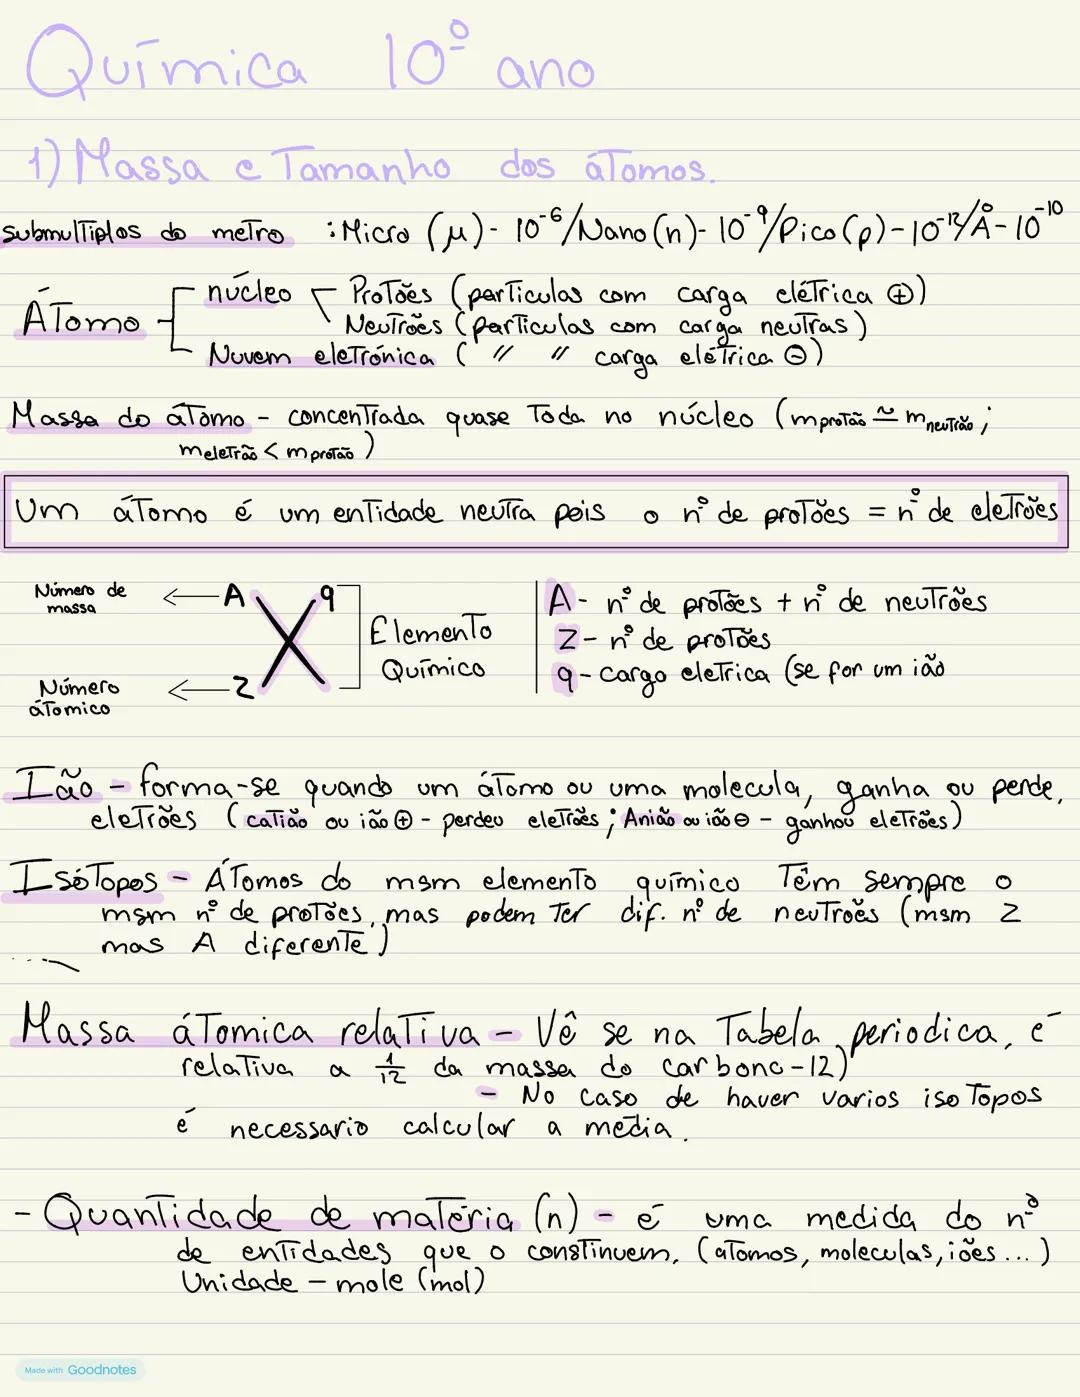 Química 10º ano
1) Massa e Tamanho dos átomos.
submultiplos do metro : Micro (μ) - 10⁻⁶/Nano (n) - 10⁻⁹/Pico (p) - 10⁻¹²/Å - 10⁻¹⁰
Átomo
núcleo
Protões (particulas com carga elétrica ⊕)
Neutrões (particulas com carga neutras)
Nuvem eletrónica ( " " carga elétrica ⊖)
Massa do átomo - concentrada quase toda no núcleo (mprotão ≃ mneutrão ;
meletrão < mprotão )
Um átomo é um entidade neutra pois o nº de protões = nº de eletrões
Número de massa ← A
X
q
Z
Número átomico ←
Elemento Químico
A - nº de protões + nº de neutrões
Z - nº de protões
q - cargo eletrica (se for um ião
Ião - forma-se quando um átomo ou uma molecula, ganha ou perde,
eletrões (catião ou ião ⊕ - perdeu eletrões ; Anião ou ião ⊖ - ganhou eletrões)
Isótopos - Átomos do msm elemento químico Têm sempre o
msm nº de protões, mas podem ter dif. nº de neutrões (msm Z
mas A diferente)
Massa átomica relativa - Vê se na Tabela periodica, é
relativa a 1/12 da massa do carbono-12)
- No caso de haver varios isotopos
é necessario calcular a média.
- Quantidade de matéria (n) - é uma medida do nº
de entidades que o constinuem, (atomos, moleculas, iões ...)
Unidade - mole (mol)
Made with Goodnotes